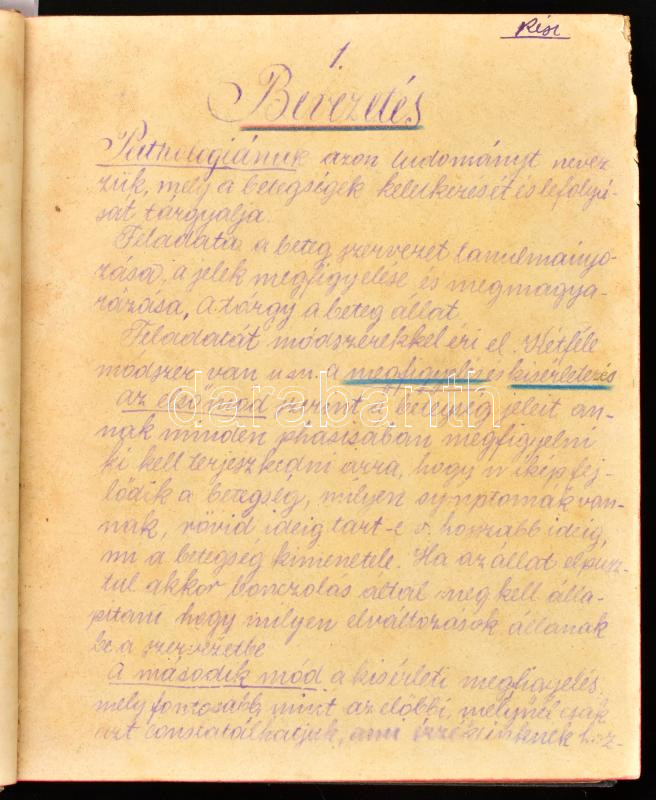 Rész
1.
Bevezetés
Pathologiának azon tudományt nevez-
zük, mely a betegségek keletkezését és lefolyá-
sát tárgyalja.
Feladata a beteg szervezet tanulmányo-
zása, a jelek megfigyelése és megmagya-
rázása, A tárgy a beteg állat
Feladatát módszerekkel éri el. Kétféle
módszer van u.m. a megfigyelés és kisérletezés
darabanth
az első mód szerint a betegség jeleit an-
nak minden phasisában megfigyelni
ki kell terjeszkedni arra, hogy mikép fej-
lődik a betegség, milyen symptomák van-
nak, rövid ideig tart-e v. hosszabb ideig,
mi a betegség kimenetele. Ha az állat elpusz-
tul akkor bonczolás által meg kell álla-
pitani hogy milyen elváltozások állanak
be a szervezetbe
A második mód a kisérleti megfigyelés
mely fontosabb mint az előbbi, melynél csak
azt constatálhatjuk, ami érzékeinknek hoz-